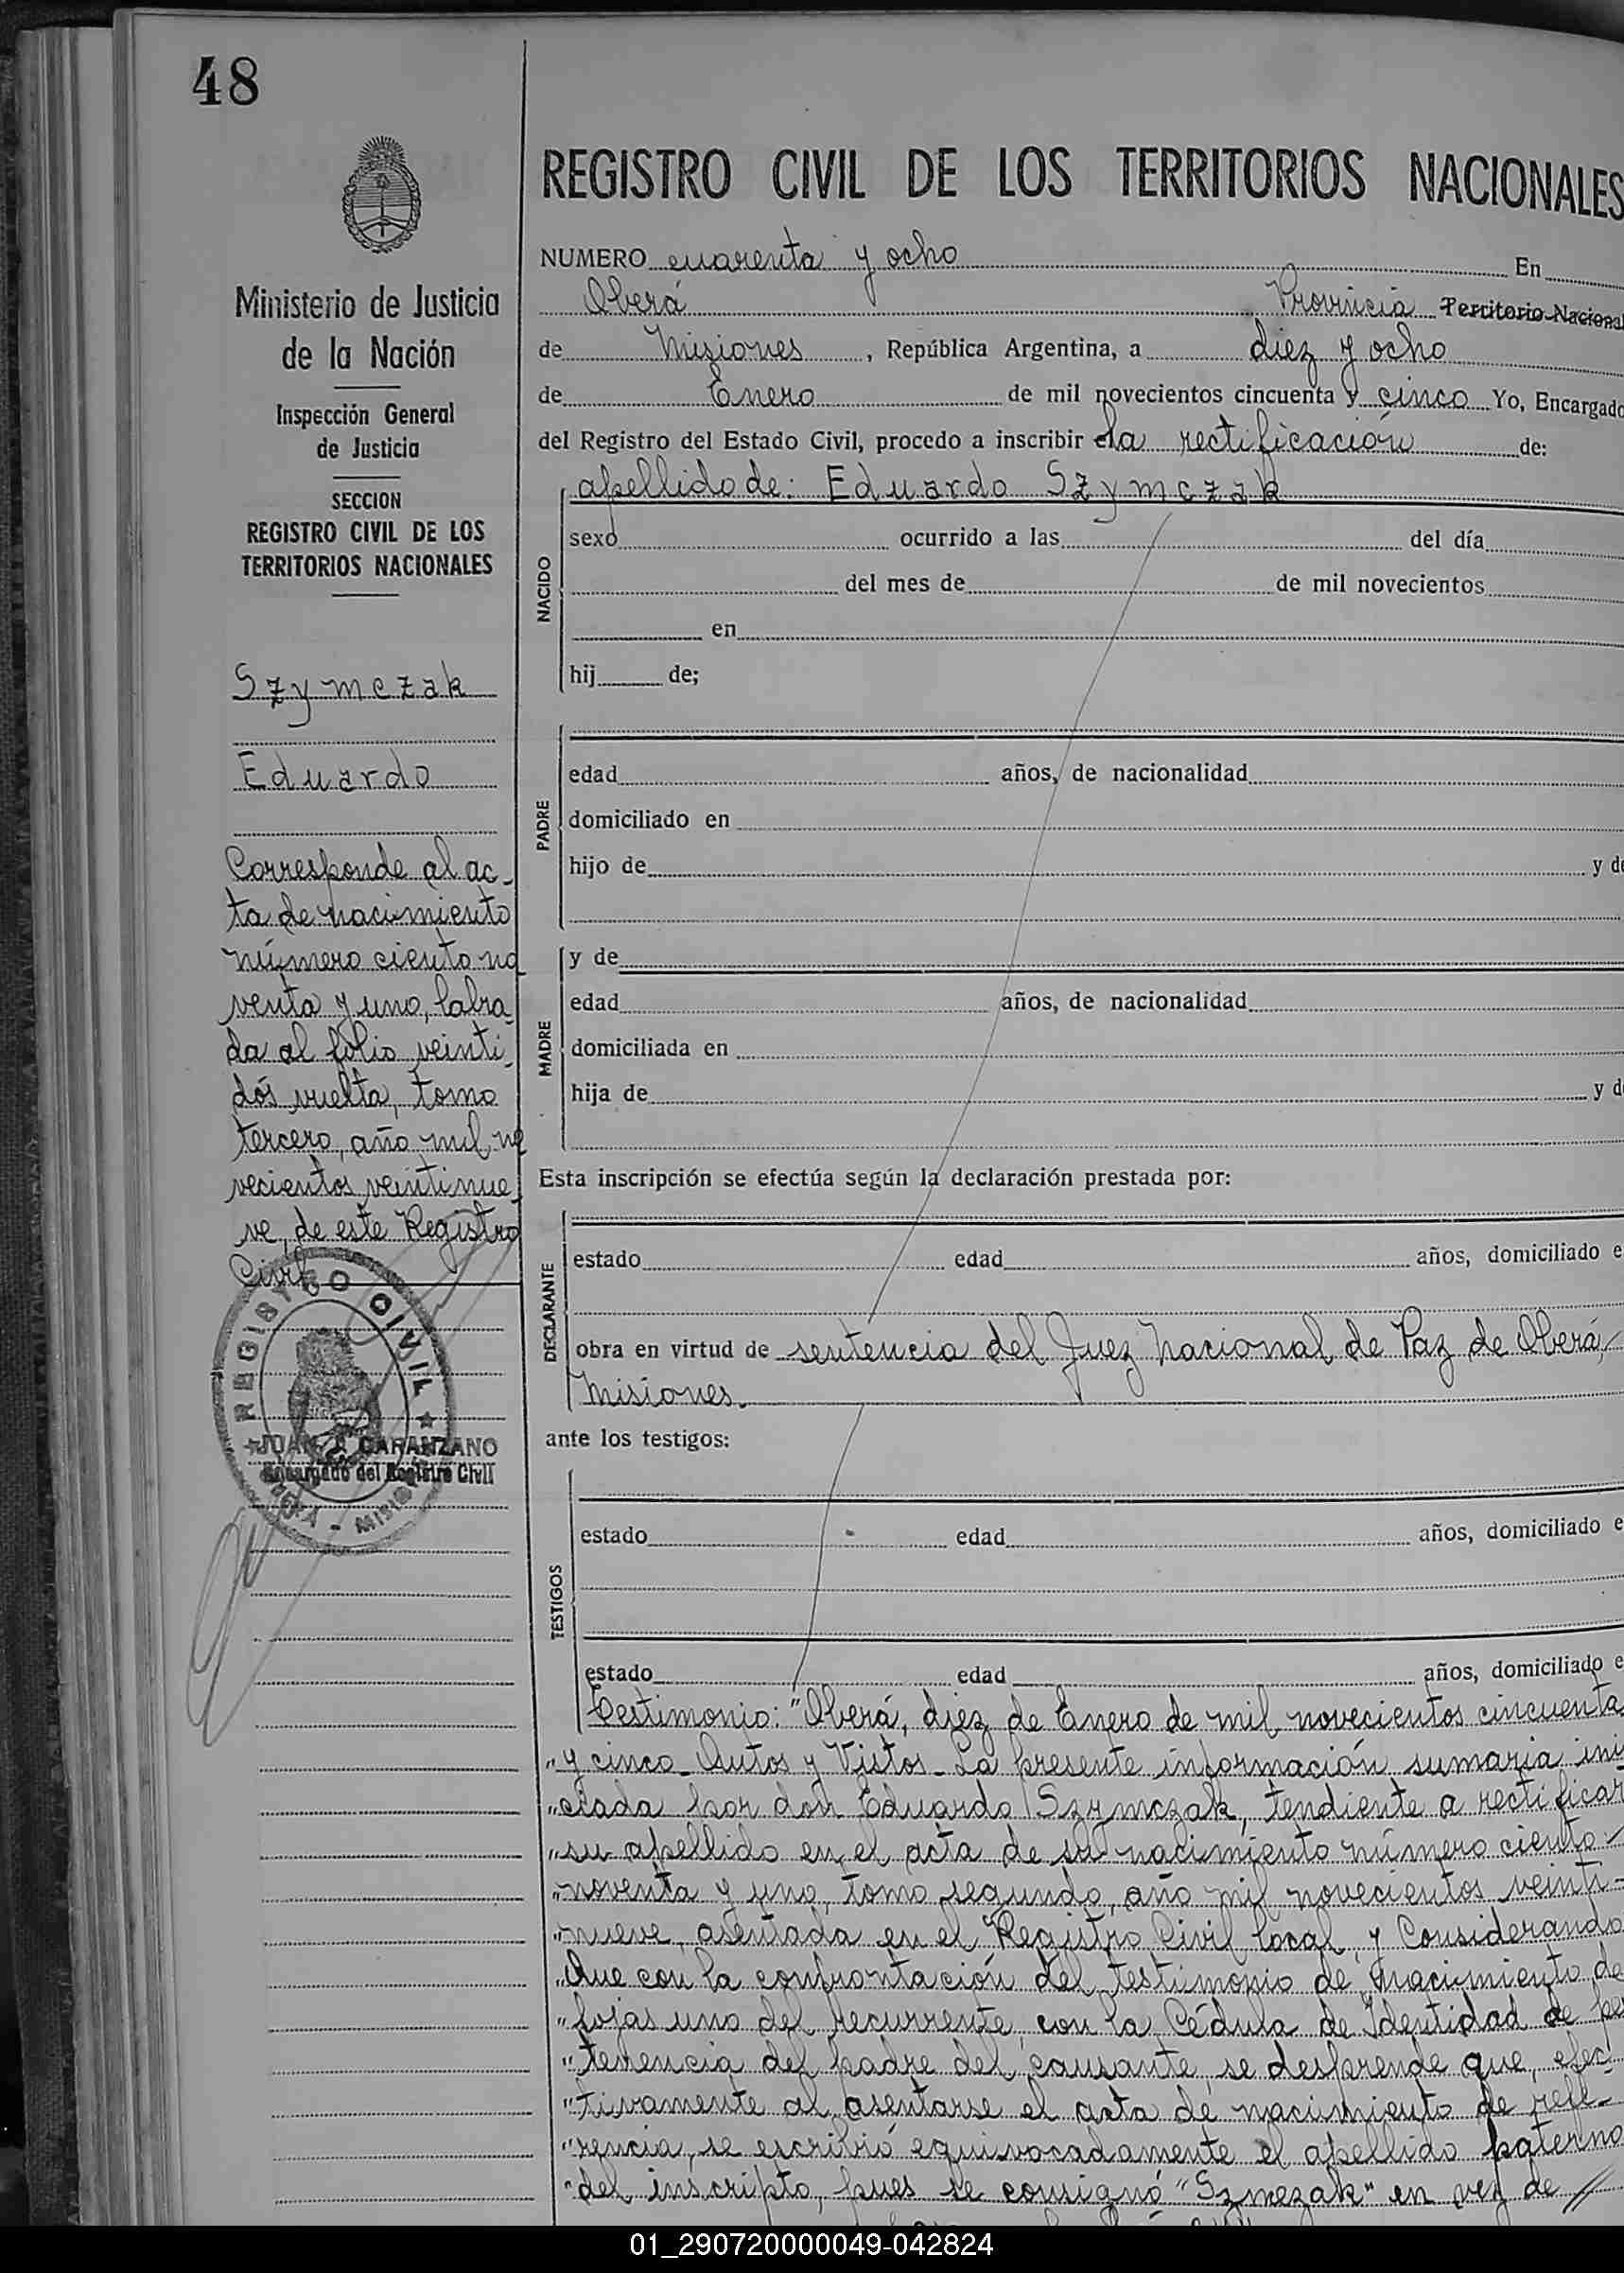 48
Ministerio de Justicia
de la Nación
Inspección General
de Justicia
SECCION
REGISTRO CIVIL DE LOS
TERRITORIOS NACIONALES
Szymczak
Eduardo
Corresponde al ac-
ta de nacimiento
número ciento no
venta y uno, labra
da al folio veinti-
dós vuelta, tomo
tercero, año mil no
vecientos veintinue
ve, de este Registro
Civil
REGISTRO CIVIL
JUAN CARANZANO
Encargado del Registro Civil
REGISTRO CIVIL DE LOS TERRITORIOS NACIONALES
NUMERO cuarenta y ocho En
Oberá Provincia Territorio Nacional
de Misiones, República Argentina, a diez y ocho
de Enero de mil novecientos cincuenta y cinco Yo, Encargado
del Registro del Estado Civil, procedo a inscribir la rectificación de:
apellido de: Eduardo Szymczak
NACIDO
sexo ocurrido a las del día
del mes de de mil novecientos
en
hij de;
PADRE
edad años, de nacionalidad
domiciliado en
hijo de y de
MADRE
y de
edad años, de nacionalidad
domiciliada en
hija de y d
Esta inscripción se efectúa según la declaración prestada por:
DECLARANTE
estado edad años, domiciliado e
obra en virtud de sentencia del Juez Nacional de Paz de Oberá,
Misiones.
ante los testigos:
TESTIGOS
estado edad años, domiciliado e
estado edad años, domiciliado e
Testimonio: "Oberá, diez de Enero de mil novecientos cincuenta
"y cinco. Autos y Vistos. La presente información sumaria ini
"ciada por don Eduardo Szymczak, tendiente a rectificar
"su apellido en el acta de su nacimiento número ciento
"noventa y uno, tomo segundo, año mil novecientos veinti-
"nueve, asentada en el Registro Civil local, y Considerando
"Que con la confrontación del testimonio de nacimiento de
"fojas uno del recurrente con la Cédula de Identidad de per
"tenencia del padre del causante, se desprende que, efec-
"tivamente al asentarse el acta de nacimiento de refe-
"rencia, se escribió equivocadamente el apellido paterno
"del inscripto, pues se consignó "Szmezak" en vez de //
01_290720000049-042824